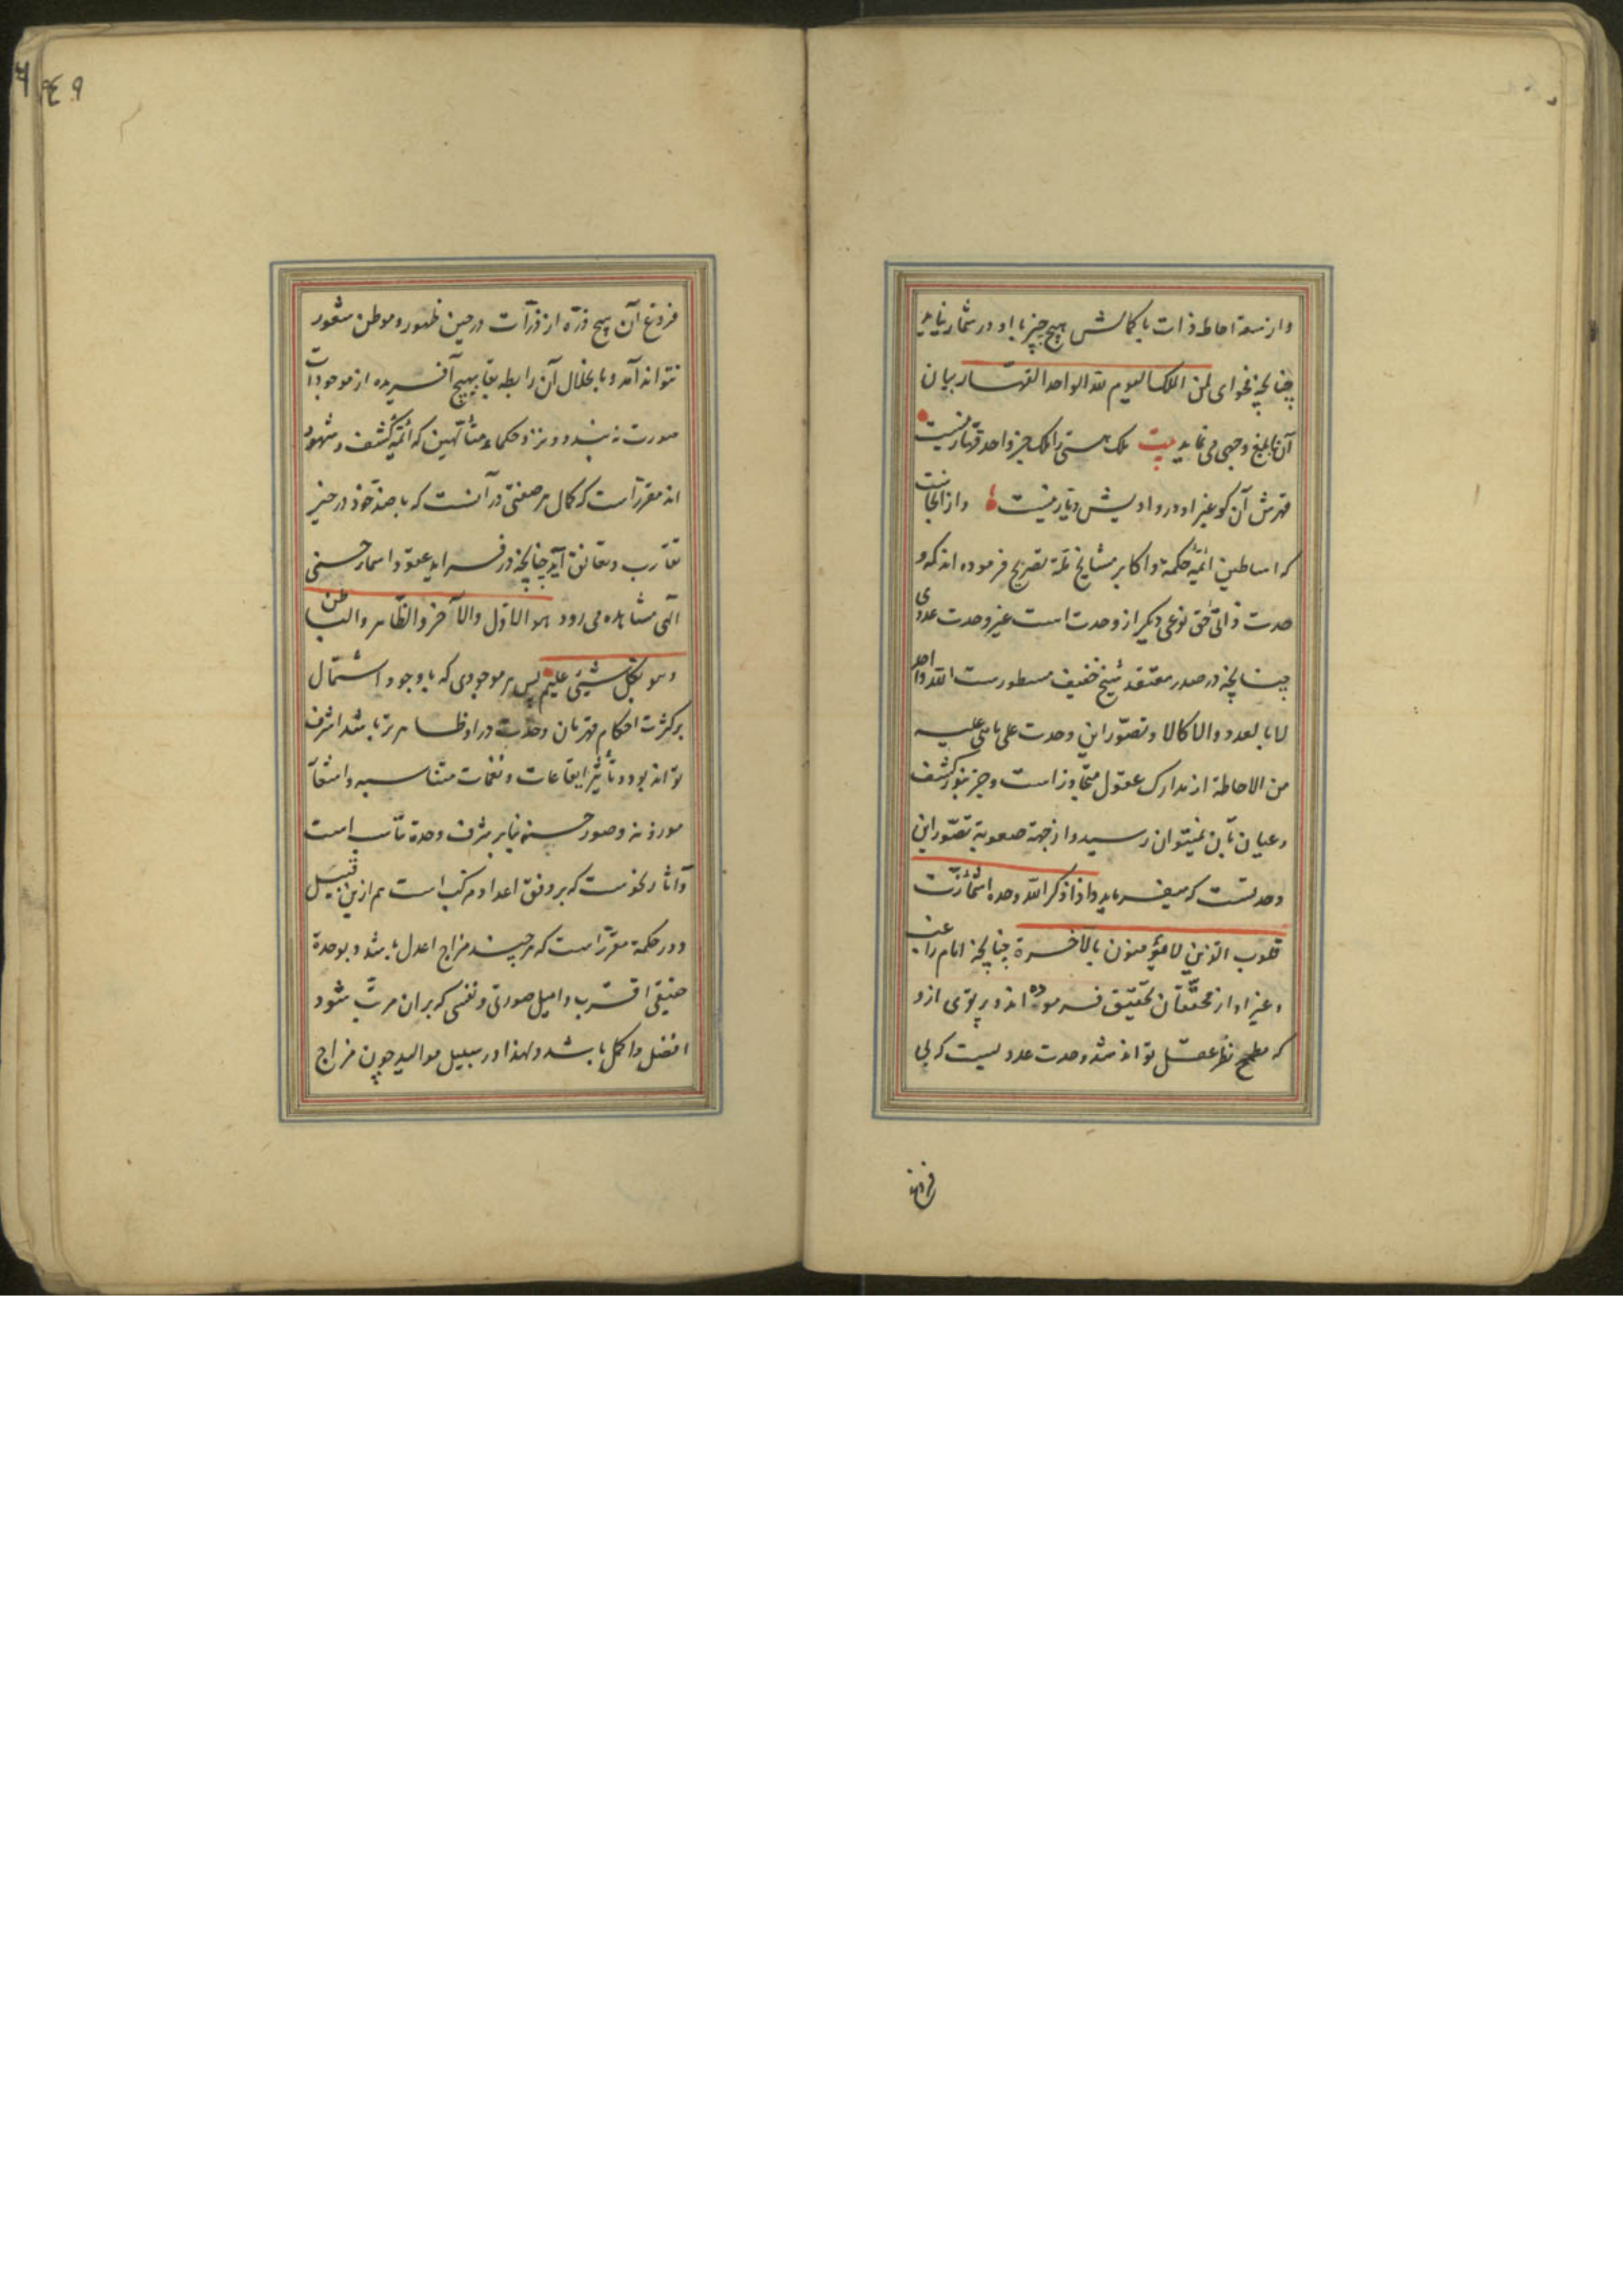 واز سعة احاطه ذات با کمالش هیچ چیز با او در شمار نیاید
چنانچه فحوای لمن الملک الیوم لله الواحد القهار بیان
آن بابلغ وجهی می نماید بیت ملک هستی را ملک جز واحد قهار نیست
قهرش آن کو غیر او در وادیش دیار نیست واز اینجاست
که اساطین ائمّهٔ حکمة و اکابر مشایخ ملّة تصریح فرموده اند که و
حدت ذاتی حق نوعی دیگر از وحدت است غیر وحدت عددی
چنانچه در صدر معتقد شیخ خفیف مسطورست الله واحد
لا بالعدد والا کالا وتصوّر این وحدت علی ما هی علیه
من الاحاطة از مدارک عقول متجاوز است وجز بنور کشف
وعیان بآن نمیتوان رسید واز جهة صعوبة تصوّر این
وحدتست که میفرماید واذا ذکر الله وحده اشمأزّت
قلوب الّذین لا یؤمنون بالآخرة چنانچه امام راغب
وغیر او از محقّقان تحقیق فرموده اند وپرتوی ازو
که مطمح نظر عقل تواند شد وحدت عددیست که بی
فروغ
٩٤٩
فروغ آن هیچ ذرّه از ذرّات در حین ظهور وموطن شعور
نتواند آمد وبا انحلال آن رابطه بقا بهیچ آفریده از موجودات
صورت نه بندد ونزد حکماء متألّهین که ائمّه کشف وشهود
اند مقرّر است که کمال هر صفتی در آنست که با ضدّ خود در حیز
تقارب وتعانق آید چنانچه در فراید عقود اسمار حسنی
الهی مشاهده می رود هو الاوّل والآخر والظّاهر والباطن
وهو بکلّ شیئی علیم پس هر موجودی که با وجود اشتمال
بر کثرت احکام قهرمان وحدت در او ظاهرتر باشد اشرف
تواند بود وتأثیر ایقاعات ونغمات متناسبه واشعار
موزونه وصور حسنه بنابر شرف وحدة تناسب است
وآثار نحوست که بر وفق اعداد مرکب است هم ازین قبیل
ودر حکمة مقرّر است که هر چند مزاج اعدل باشد وبوحدة
حقیقی اقرب وامیل صورتی ونفسی که بران مرتّب شود
افضل واکمل باشد ولهذا در سبیل موالید چون مزاج